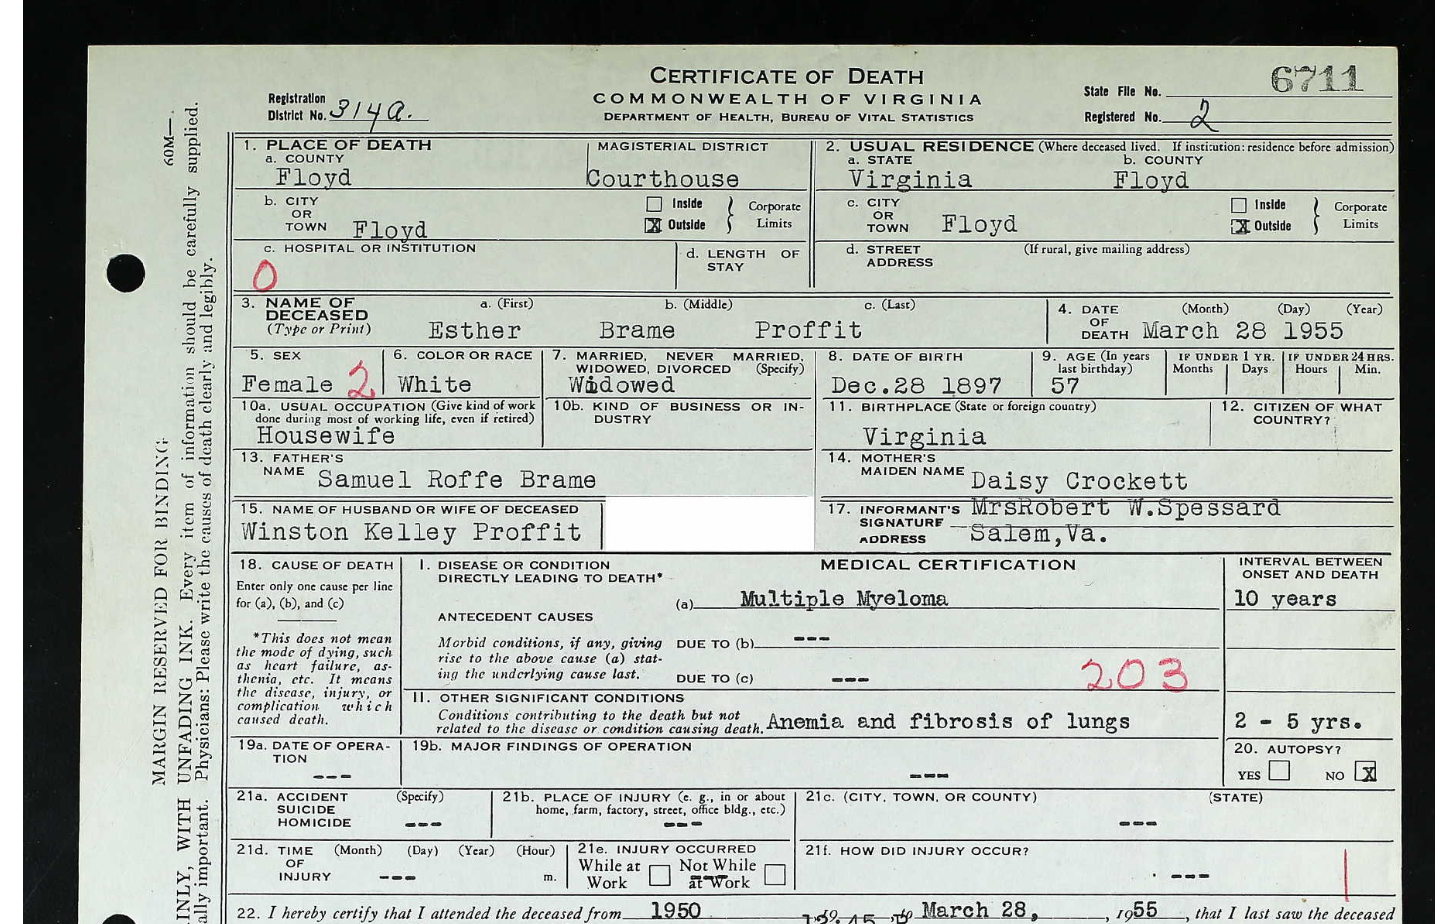 CERTIFICATE OF DEATH
6711
COMMONWEALTH OF VIRGINIA
DEPARTMENT OF HEALTH, BUREAU OF VITAL STATISTICS
Registration District No. 314a.
State File No.
Registered No. 2
MARGIN RESERVED FOR BINDING
60M—.
INLY, WITH UNFADING INK. Every item of information should be carefully supplied.
ally important. Physicians: Please write the causes of death clearly and legibly.
1. PLACE OF DEATH
a. COUNTY
Floyd
MAGISTERIAL DISTRICT
Courthouse
2. USUAL RESIDENCE (Where deceased lived. If institution: residence before admission)
a. STATE
Virginia
b. COUNTY
Floyd
b. CITY OR TOWN Floyd
Inside
X Outside
Corporate Limits
c. CITY OR TOWN Floyd
Inside
X Outside
Corporate Limits
c. HOSPITAL OR INSTITUTION
0
d. LENGTH OF STAY
d. STREET ADDRESS
(If rural, give mailing address)
3. NAME OF DECEASED (Type or Print)
a. (First)
b. (Middle)
c. (Last)
Esther Brame Proffit
4. DATE OF DEATH
(Month) (Day) (Year)
March 28 1955
5. SEX
Female 2
6. COLOR OR RACE
White
7. MARRIED, NEVER MARRIED, WIDOWED, DIVORCED (Specify)
Widowed
8. DATE OF BIRTH
Dec.28 1897
9. AGE (In years last birthday)
57
IF UNDER 1 YR.
Months Days
IF UNDER 24 HRS.
Hours Min.
10a. USUAL OCCUPATION (Give kind of work done during most of working life, even if retired)
Housewife
10b. KIND OF BUSINESS OR INDUSTRY
11. BIRTHPLACE (State or foreign country)
Virginia
12. CITIZEN OF WHAT COUNTRY?
13. FATHER'S NAME Samuel Roffe Brame
14. MOTHER'S MAIDEN NAME Daisy Crockett
15. NAME OF HUSBAND OR WIFE OF DECEASED
Winston Kelley Proffit
17. INFORMANT'S SIGNATURE MrsRobert W.Spessard
ADDRESS Salem,Va.
18. CAUSE OF DEATH
Enter only one cause per line for (a), (b), and (c)
*This does not mean the mode of dying, such as heart failure, asthenia, etc. It means the disease, injury, or complication which caused death.
I. DISEASE OR CONDITION DIRECTLY LEADING TO DEATH*
MEDICAL CERTIFICATION
INTERVAL BETWEEN ONSET AND DEATH
(a) Multiple Myeloma
10 years
ANTECEDENT CAUSES
Morbid conditions, if any, giving rise to the above cause (a) stating the underlying cause last.
DUE TO (b) ---
DUE TO (c) ---
203
II. OTHER SIGNIFICANT CONDITIONS
Conditions contributing to the death but not related to the disease or condition causing death. Anemia and fibrosis of lungs
2 - 5 yrs.
19a. DATE OF OPERATION
---
19b. MAJOR FINDINGS OF OPERATION
---
20. AUTOPSY?
YES NO X
21a. ACCIDENT SUICIDE HOMICIDE
(Specify)
---
21b. PLACE OF INJURY (e. g., in or about home, farm, factory, street, office bldg., etc.)
---
21c. (CITY, TOWN, OR COUNTY)
(STATE)
---
21d. TIME OF INJURY
(Month) (Day) (Year) (Hour)
--- m.
21e. INJURY OCCURRED
While at Work
Not While at Work
21f. HOW DID INJURY OCCUR?
---
22. I hereby certify that I attended the deceased from 1950 to March 28, , 1955, that I last saw the deceased